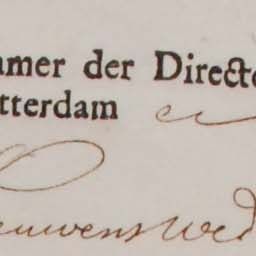 amer der Directe
tterdam en
euwens wed